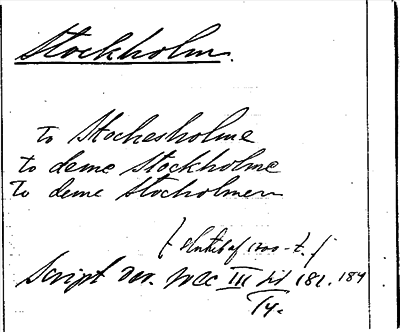 Stockholm.
to Stochesholme
to deme Stockholme
to deme Stocholmen
(Slutet af 1300-t.)
Script rer. svec III sid 182, 184
Ty.